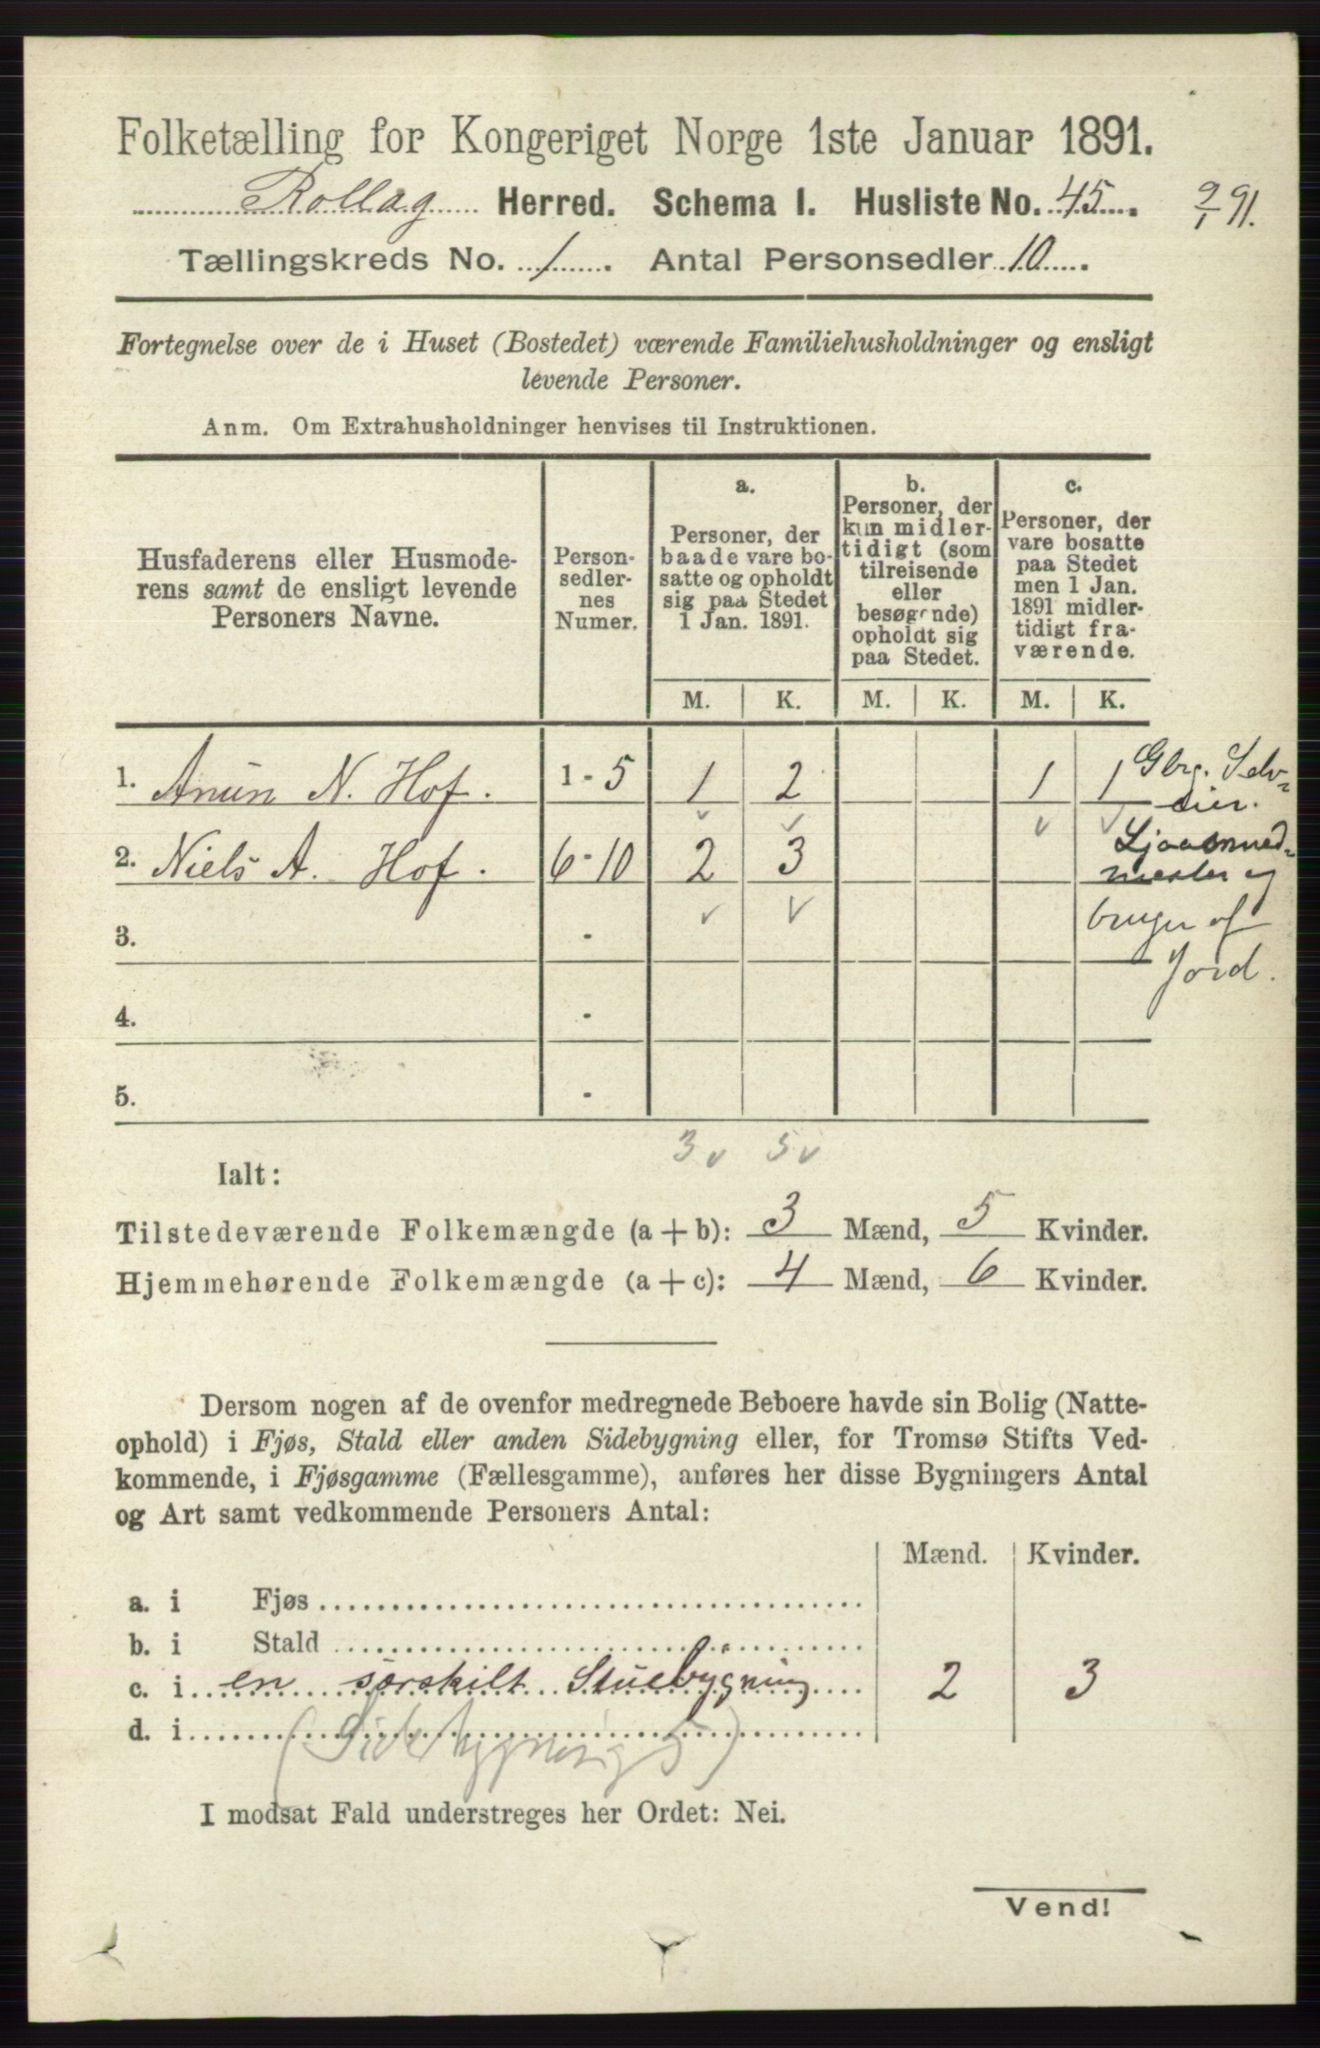 Folketælling for Kongeriget Norge 1ste Januar 1891.
Rollag Herred. Schema I. Husliste No. 45. 9/1 91.
Tællingskreds No. 1. Antal Personsedler 10.
Fortegnelse over de i Huset (Bostedet) værende Familiehusholdninger og ensligt
levende Personer.
Anm. Om Extrahusholdninger henvises til Instruktionen.
Husfaderens eller Husmode-
rens samt de ensligt levende
Personers Navne.
Person-
sedler-
nes
Numer.
a.
Personer, der
baade vare bo-
satte og opholdt
sig paa Stedet
1 Jan. 1891.
b.
Personer, der
kun midler-
tidigt (som
tilreisende
eller
besøgende)
opholdt sig
paa Stedet.
c.
Personer, der
vare bosatte
paa Stedet
men 1 Jan.
1891 midler-
tidigt fra-
værende.
M. K. M. K. M. K.
1. N. Hof. 1 - 5 1 2 1 1 Gbr. Selv-
eier.
2. Niels A. Hof. 6 - 10 2 3 Ljaasmed-
mester og
bruger af
Jord.
3. -
4. -
5. -
3 v 5 v
Ialt:
Tilstedeværende Folkemængde (a + b): 3 Mænd, 5 Kvinder.
Hjemmehørende Folkemængde (a + c): 4 Mænd, 6 Kvinder.
Dersom nogen af de ovenfor medregnede Beboere havde sin Bolig (Natte-
ophold) i Fjøs, Stald eller anden Sidebygning eller, for Tromsø Stifts Ved-
kommende, i Fjøsgamme (Fællesgamme), anføres her disse Bygningers Antal
og Art samt vedkommende Personers Antal:
Mænd. Kvinder.
a. i Fjøs
b. i Stald
c. i en særskilt Stuebygning 2 3
d. i (Sidebygning 5)
I modsat Fald understreges her Ordet: Nei.
Vend!